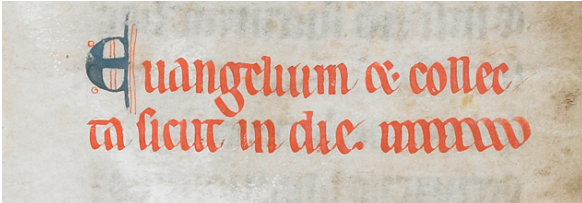 Euangelium & collec
ta sicut in die.